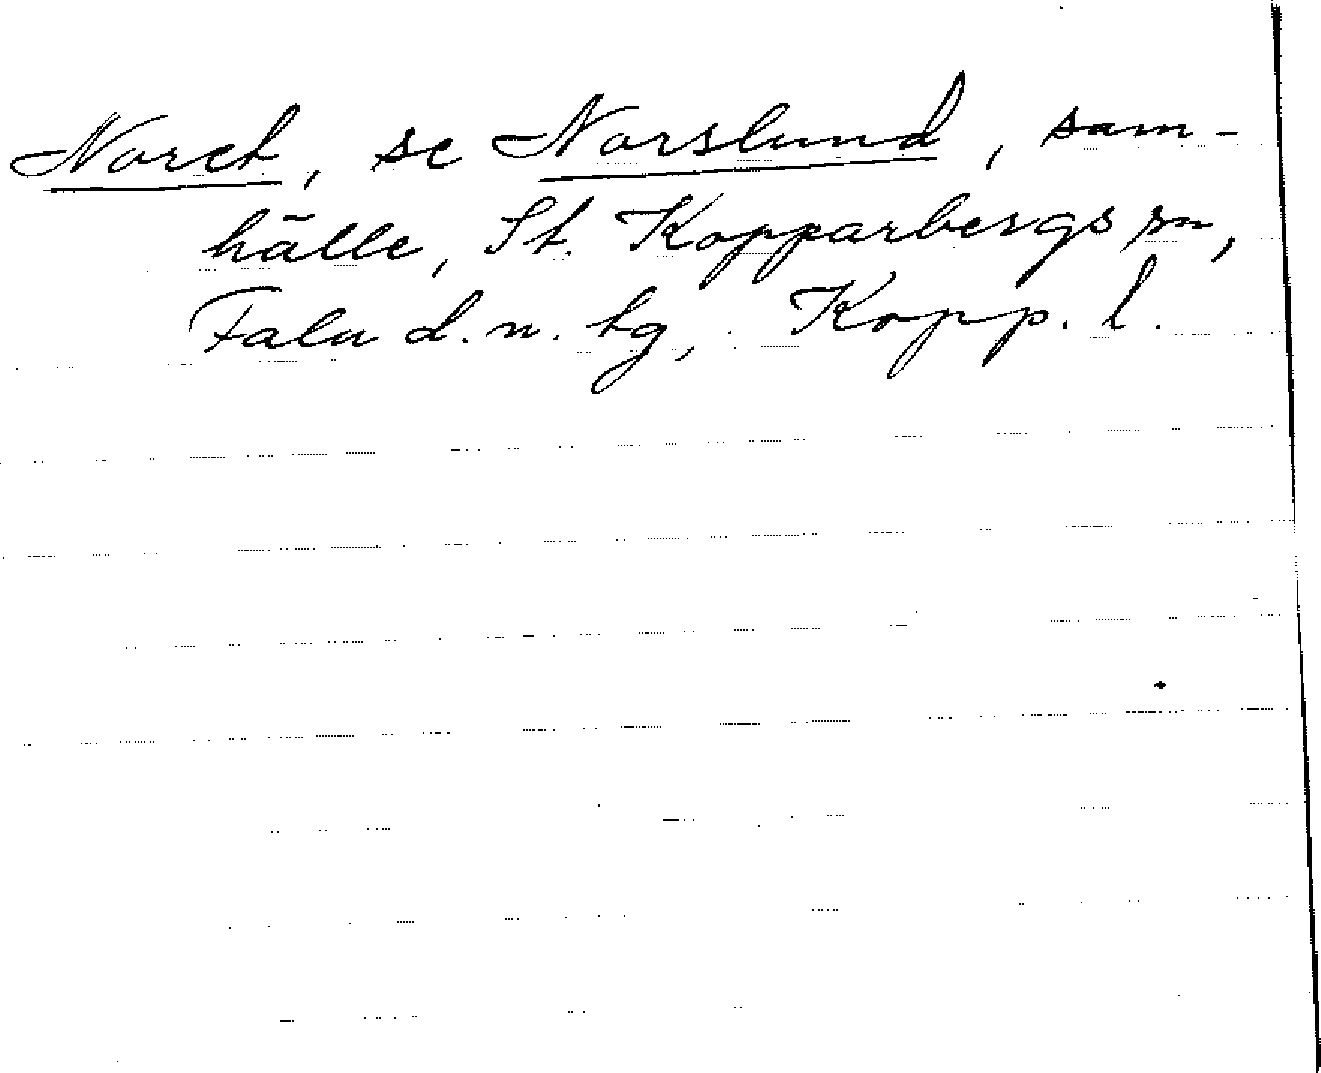 Noret, se Norslund, sam-
hälle, St. Kopparbergs sn,
Falu d.n. tg, Kopp. l.